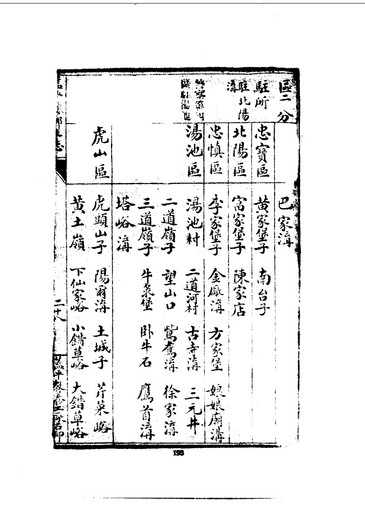 區二分
巴家溝
駐所
忠寶區
黃家堡子 南台子
駐北陽溝
北陽區
富家堡子 陳家店
忠慎區
李家堡子 金廠溝 方家堡 娘娘廟溝
湯池區
湯池村 二道河村 古寺溝 三元井
二道嶺子 望山口 鴛鴦溝 徐家溝
三道嶺子 牛 堡 臥牛石 鷹首溝
塔峪溝
虎山區
虎頭山子 陽 溝 土城子 芹菜峪
黃土嶺 下仙家峪 小錯草峪 大錯草峪
二十八
193